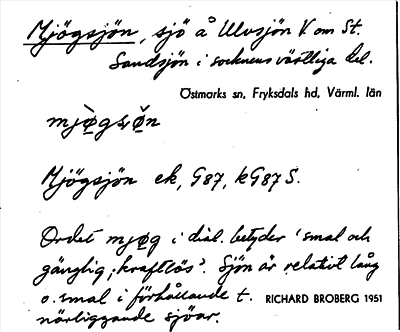 Mjögsjön, sjö å Ulvsjön V. om St.
Sandsjön i socknens västliga del.
Östmarks sn, Fryksdals hd, Värml. län
mjø̀gsø̌n
Mjögsjön ek, G87, kG87S.
Ordet mjøg i dial. betyder 'smal och
gänglig; kraftlös'. Sjön är relativt lång
o. smal i förhållande t. RICHARD BROBERG 1951
närliggande sjöar.